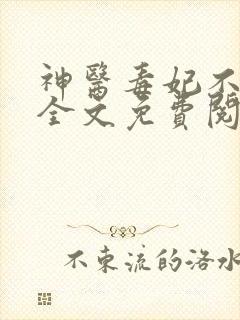 神醫毒妃不
全文免費閱
不東流的洛水